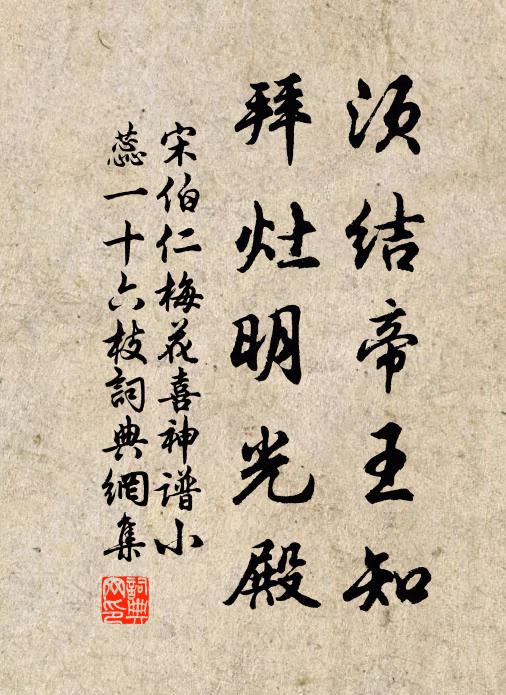 须结帝王知
拜灶明光殿
宋伯仁梅花喜神谱小
蕊一十六枝詞典網集
詞典网印